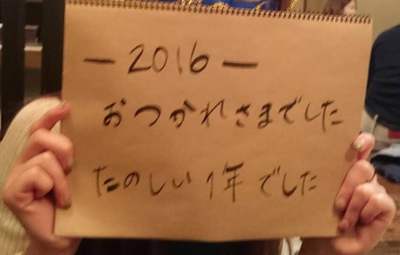 －2016－
おつかれさまでした
たのしい1年でした